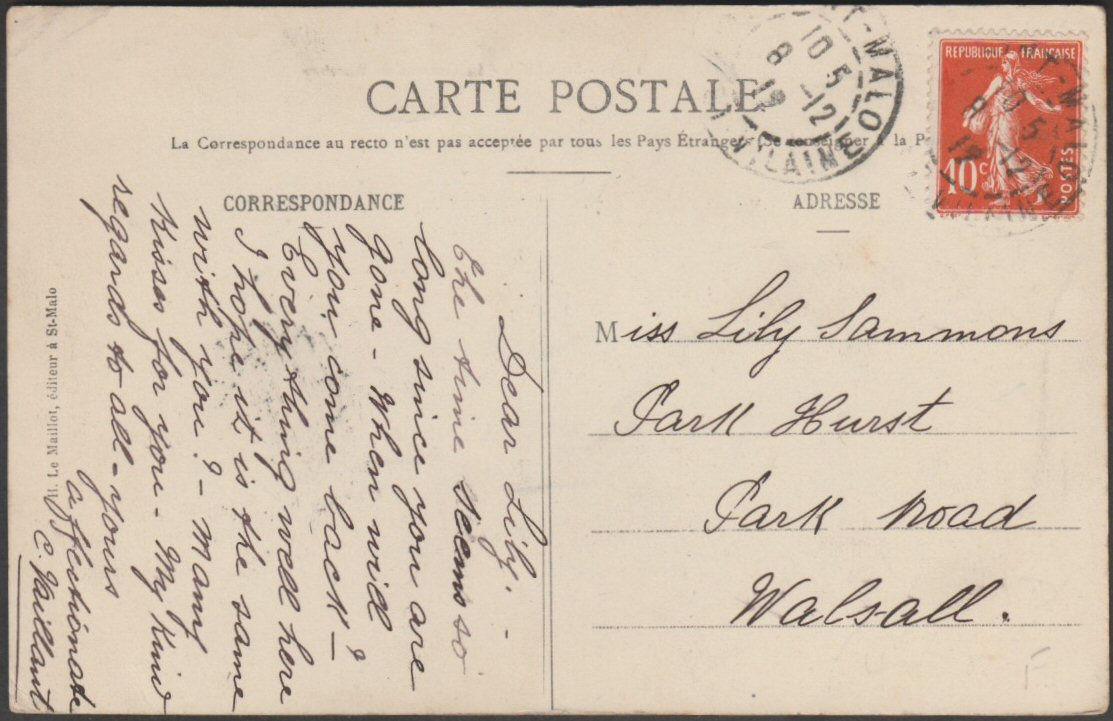 CARTE POSTALE
La Correspondance au recto n'est pas acceptée par tous les Pays Étrangers (Se renseigner à la P
RÉPUBLIQUE FRANÇAISE
10c
POSTES
ST-MALO
10 5
8 -12
12
VILAINE
CORRESPONDANCE
Dear Lily. -
The time seems so
long since you are
gone - When will
you come back -?
Everything well here
I hope it is the same
with you? - Many
kisses for you - My kind
regards to all - yours
affectionate
C. Vaillant
ADRESSE
Miss Lily Sammons
Park Hurst
Park Road
Walsall.
H. Le Maillot, éditeur à St-Malo
F